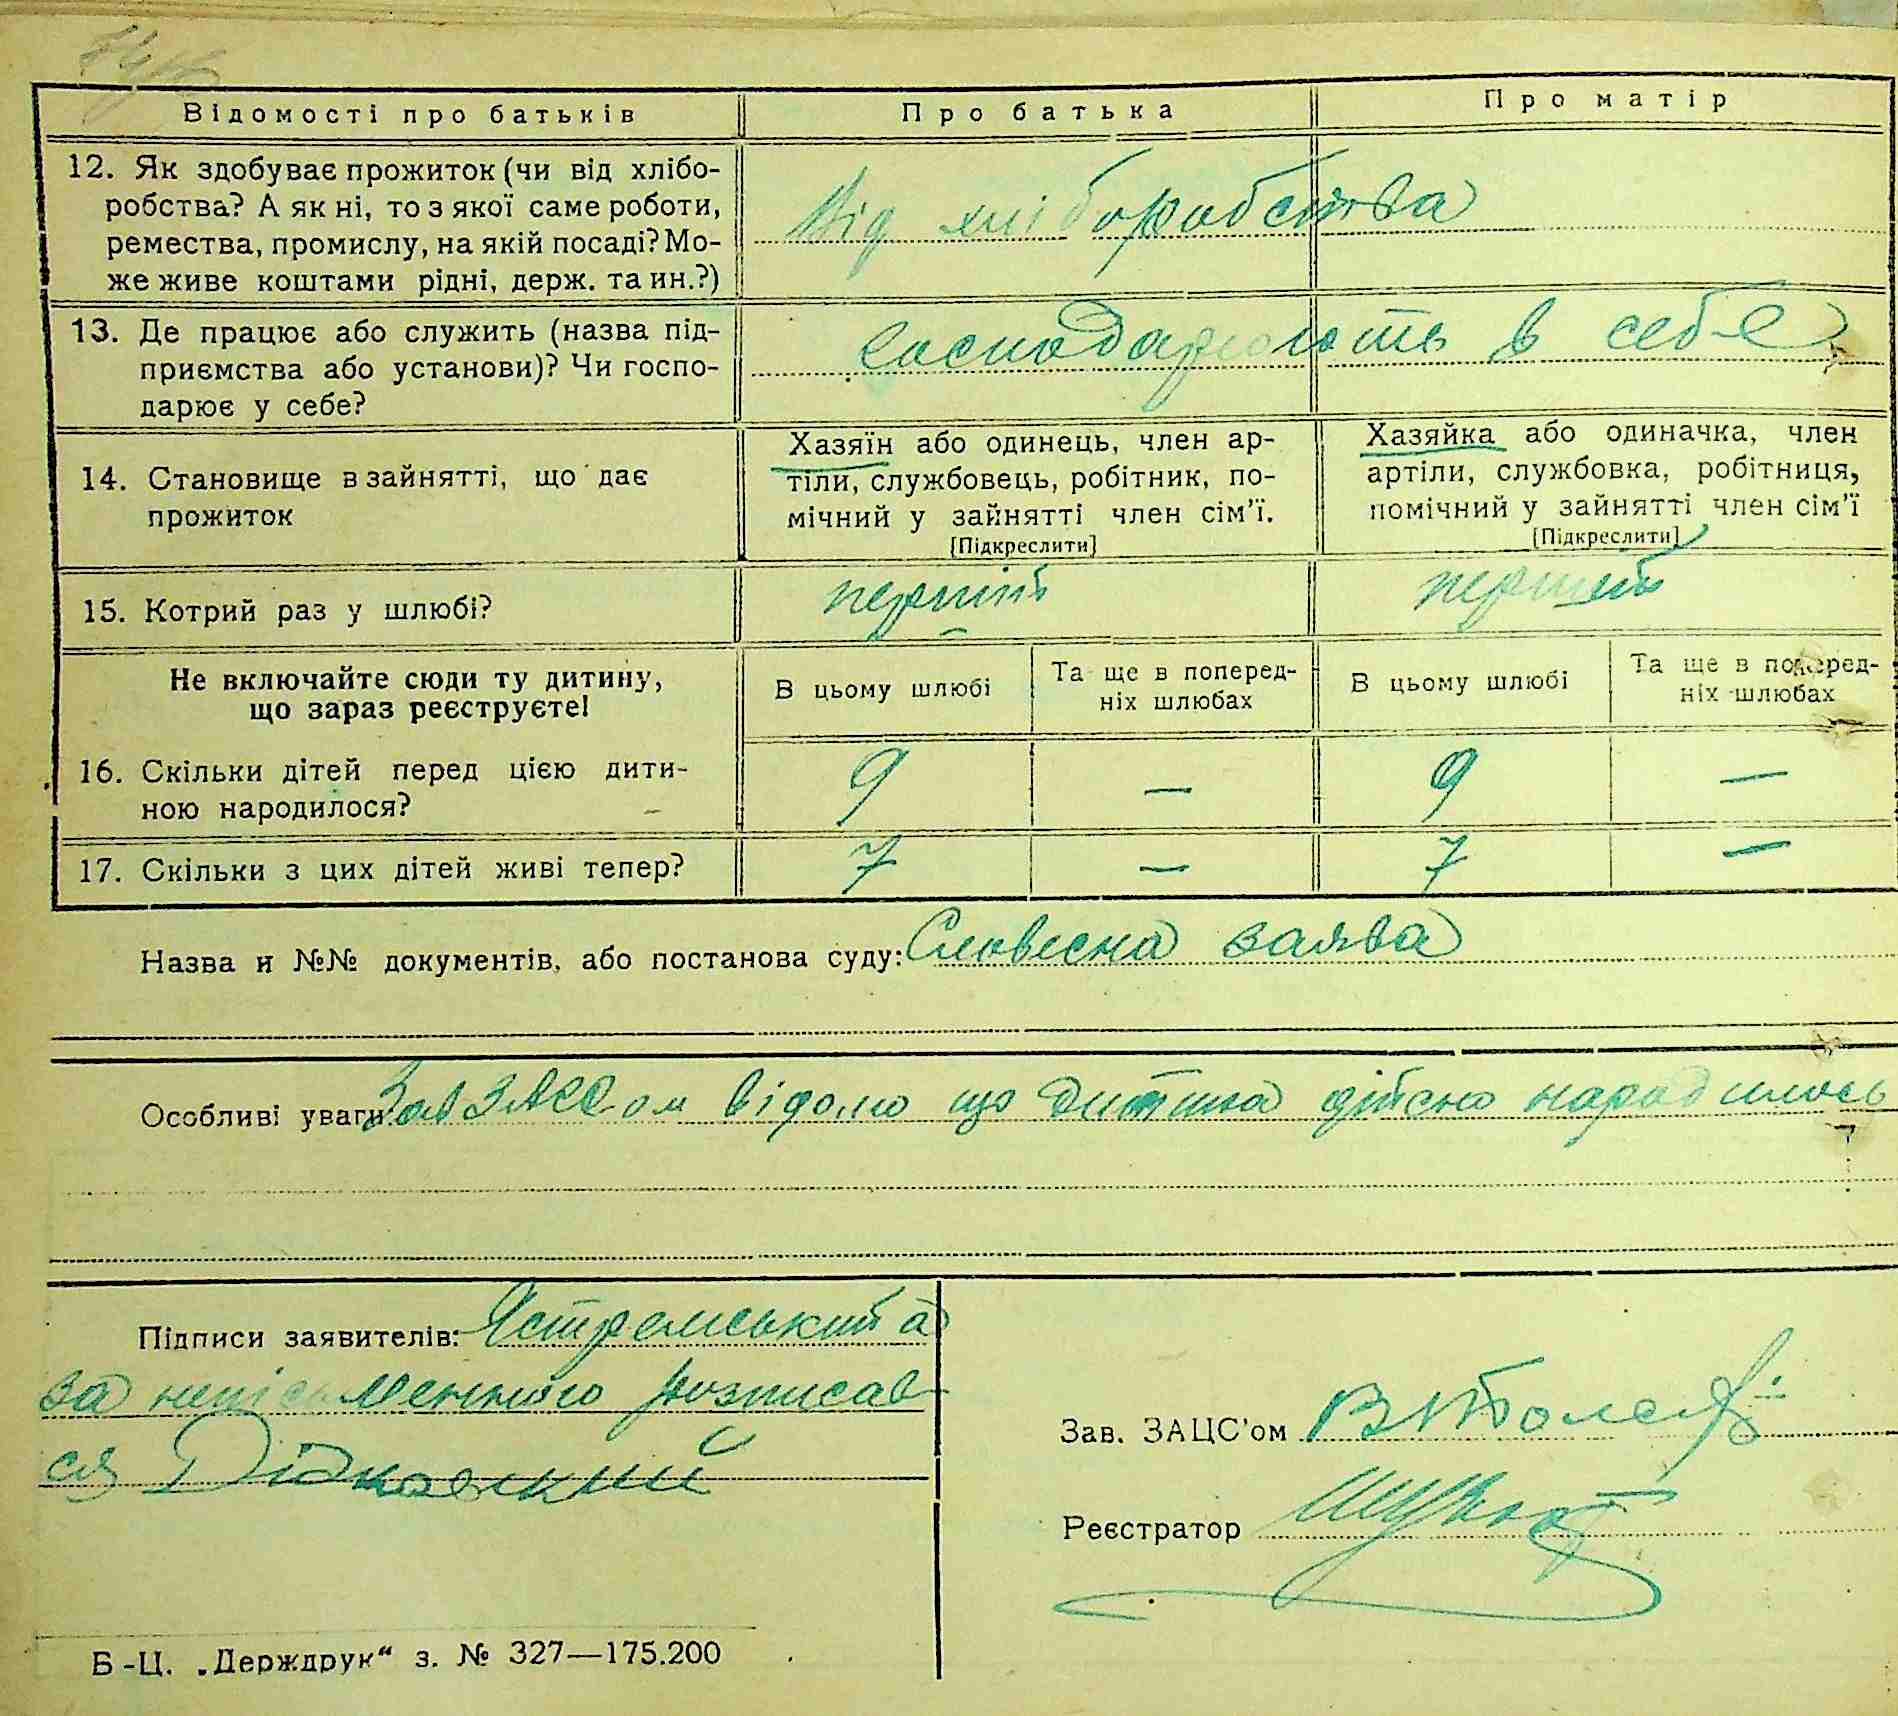 Відомості про батьків
Про батька
Про матір
12. Як здобуває прожиток (чи від хлібо-
робства? А як ні, то з якої саме роботи,
ремества, промислу, на якій посаді? Мо-
же живе коштами рідні, держ. та ин.?)
Від хліборобства
13. Де працює або служить (назва під-
приємства або установи)? Чи госпо-
дарює у себе?
господарюють в себе
14. Становище в зайнятті, що дає
прожиток
Хазяїн або одинець, член ар-
тіли, службовець, робітник, по-
мічний у зайнятті член сім'ї.
[Підкреслити]
Хазяйка або одиначка, член
артіли, службовка, робітниця,
помічний у зайнятті член сім'ї
[Підкреслити]
15. Котрий раз у шлюбі?
перший
перший
Не включайте сюди ту дитину,
що зараз реєструєте!
В цьому шлюбі
Та ще в поперед-
ніх шлюбах
В цьому шлюбі
Та ще в поперед-
ніх шлюбах
16. Скільки дітей перед цією дити-
ною народилося?
9 — 9 —
17. Скільки з цих дітей живі тепер?
7 — 7 —
Назва и №№ документів, або постанова суду: Словесна заява
Особливі уваги: відомо що дитина дійсно народилась
Підписи заявителів: Ястремський а
за неписьменного розписав
ся
Зав. ЗАЦС'ом
Реєстратор
Б-Ц. „Держдрук“ з. № 327—175.200